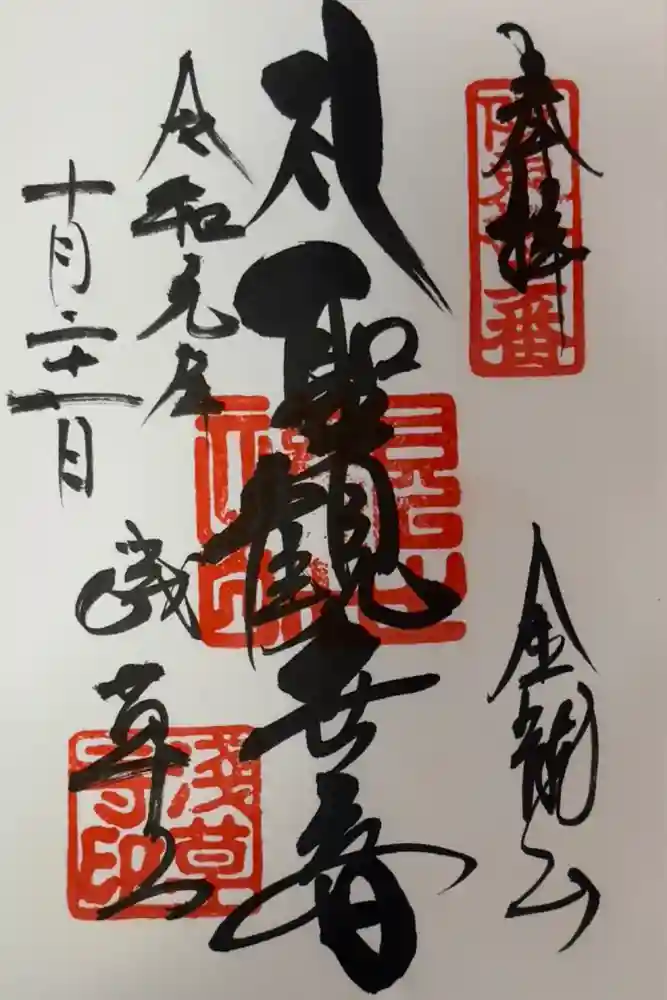 奉拝
金龍山
聖観世音
令和元年
十月二十一日
浅草寺
淺草
寺印